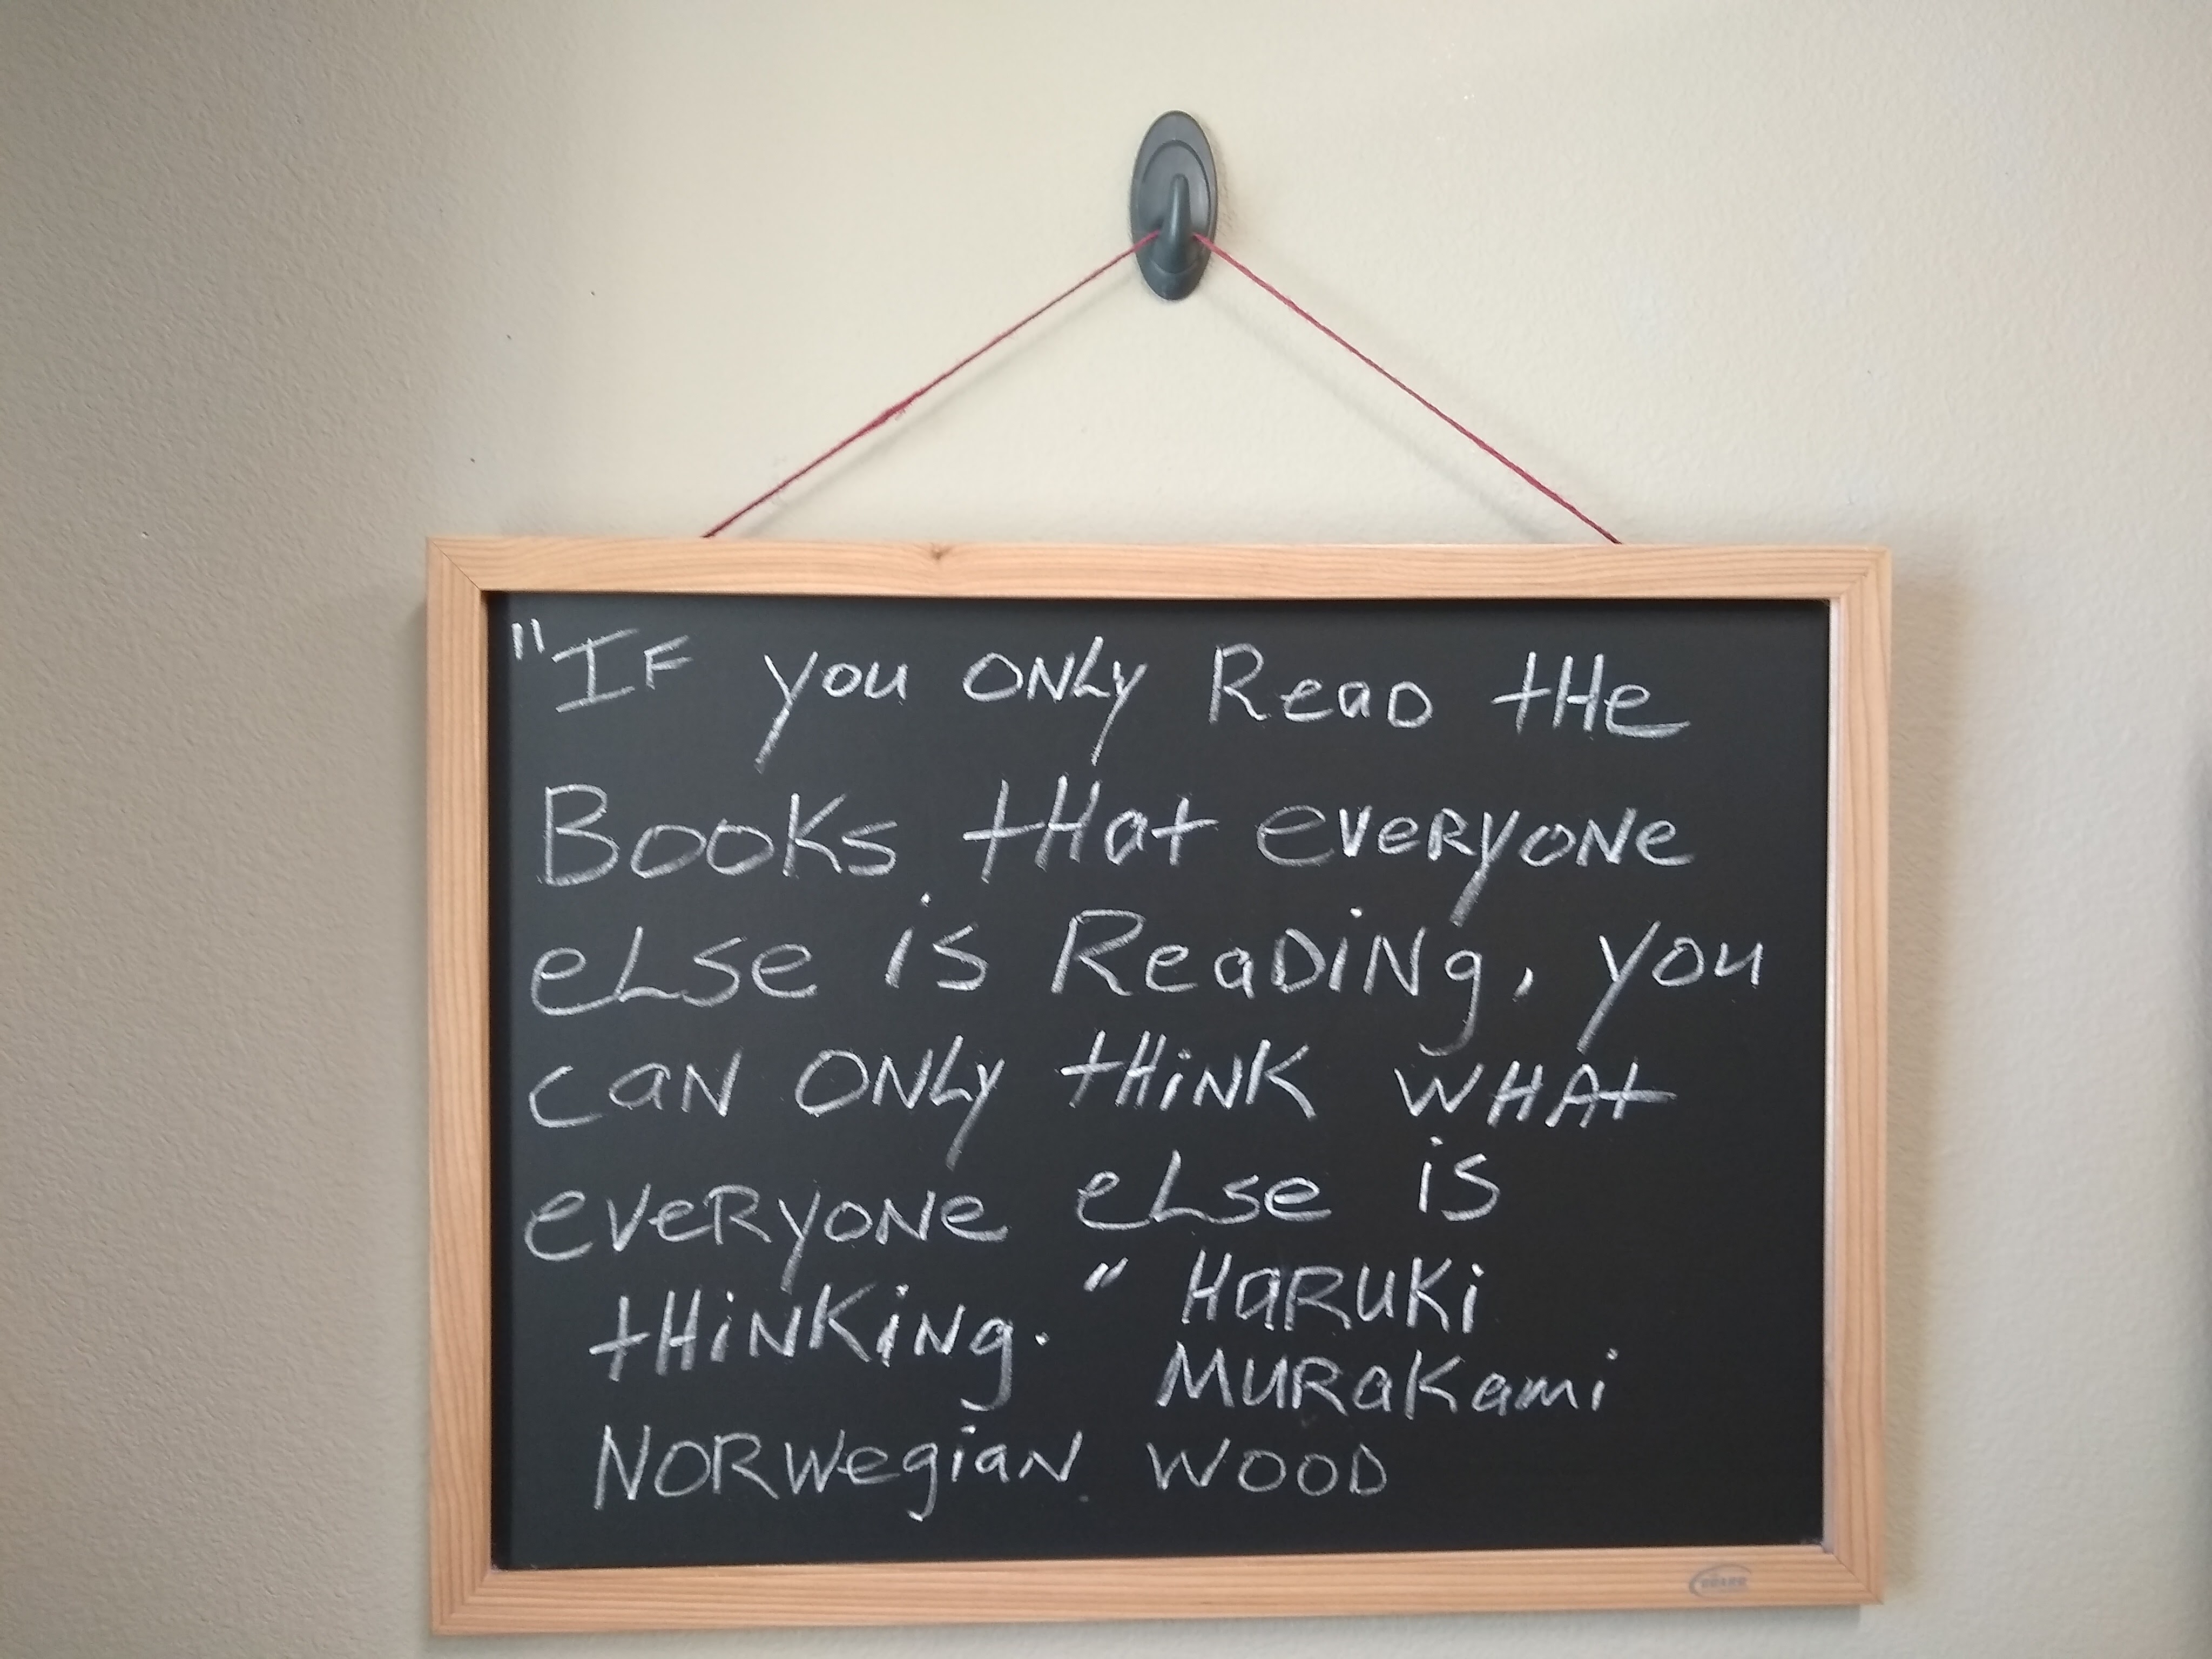 "IF you ONLy ReaD tHe
BOOKs tHat eveRyONe
eLse is ReaDiNg, you
caN ONLy tHiNK WHAt
eveRyONe eLse is
tHiNKiNg." HaRuKi
MuRaKami
NORWegiaN WOOD